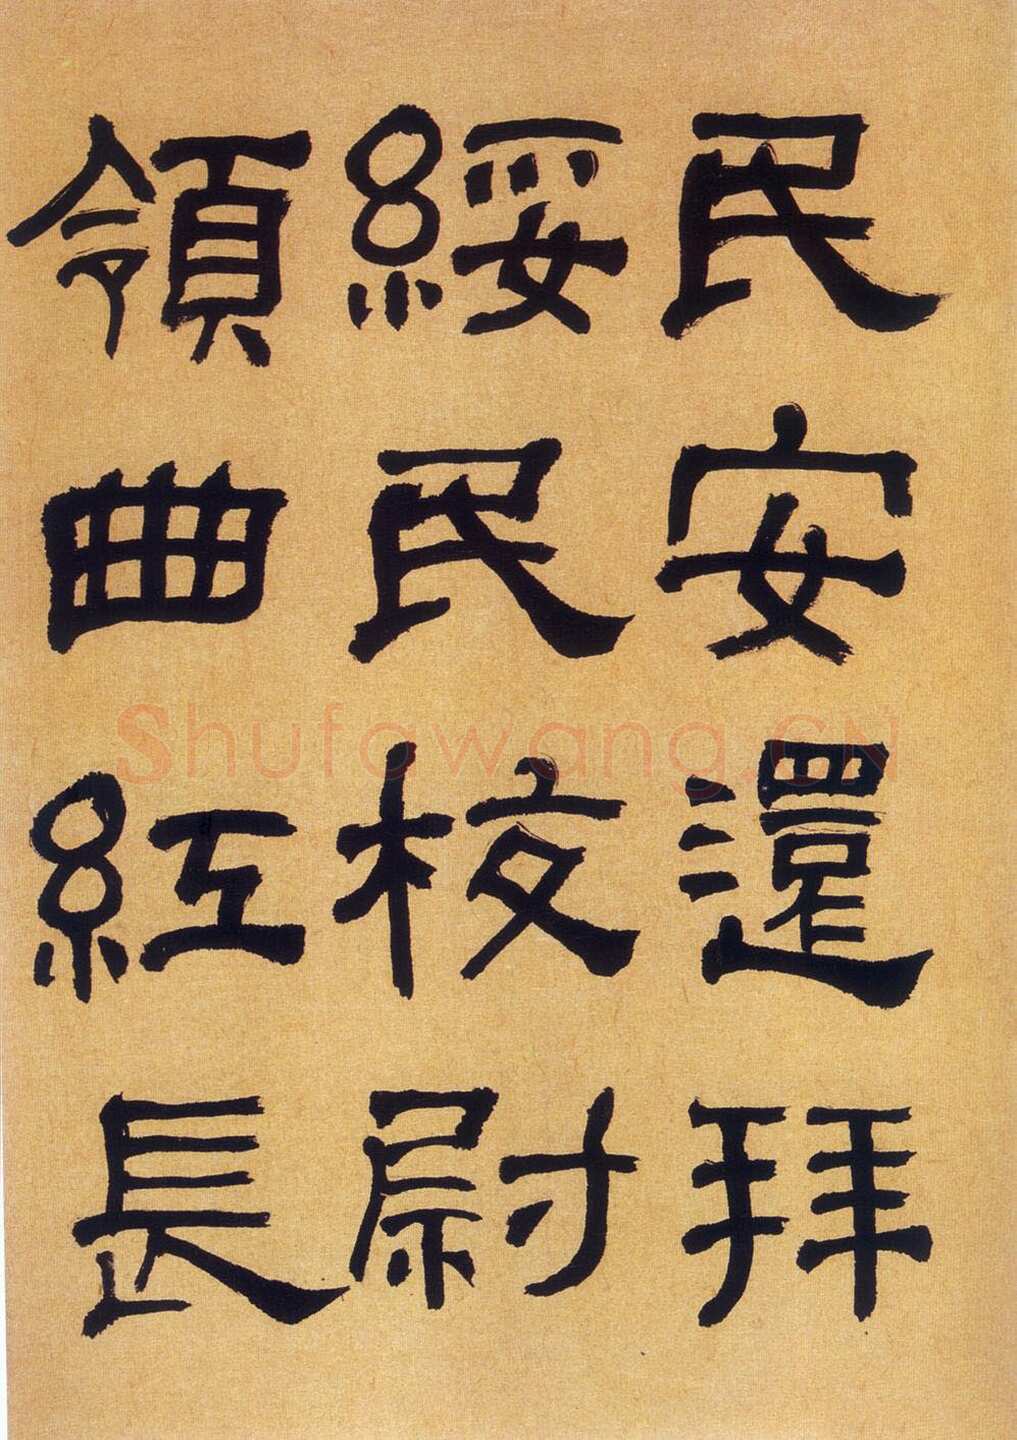 民安還拜
綏民校尉
領曲紅長
Shufawang.CN